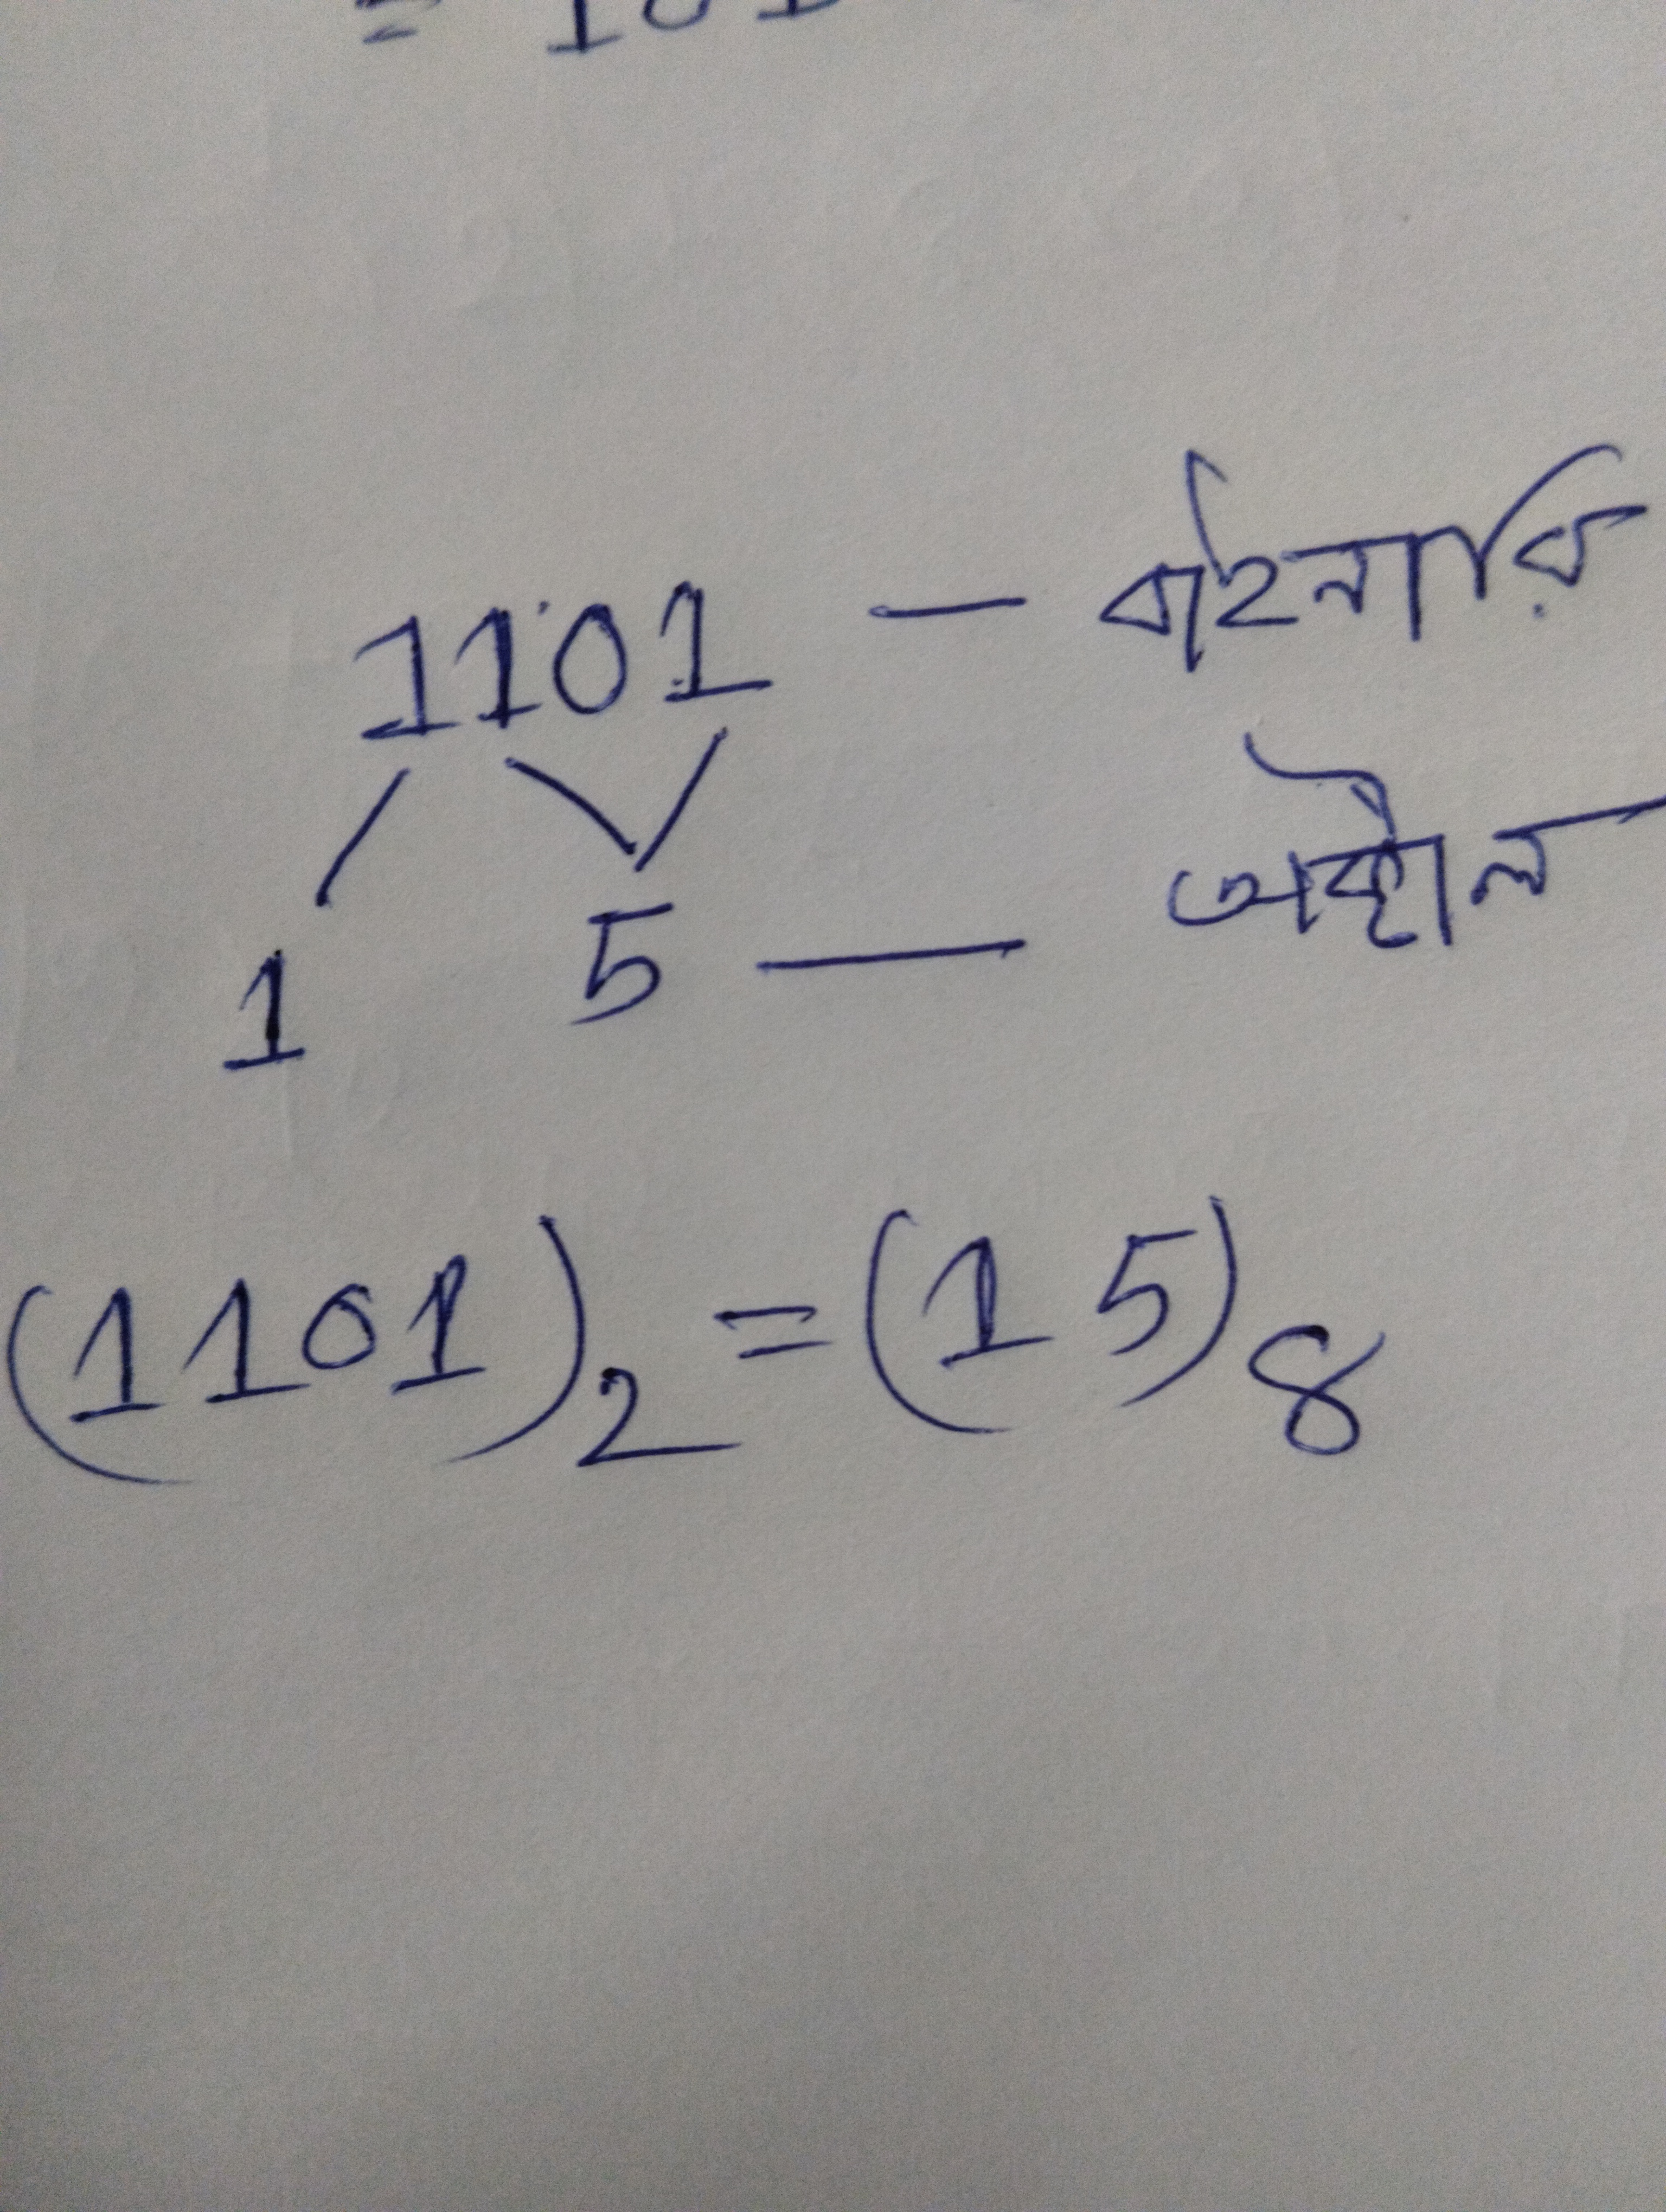 = 101
1101 — বাইনারি
1 5 — অক্টাল
(1101)₂ = (15)₈